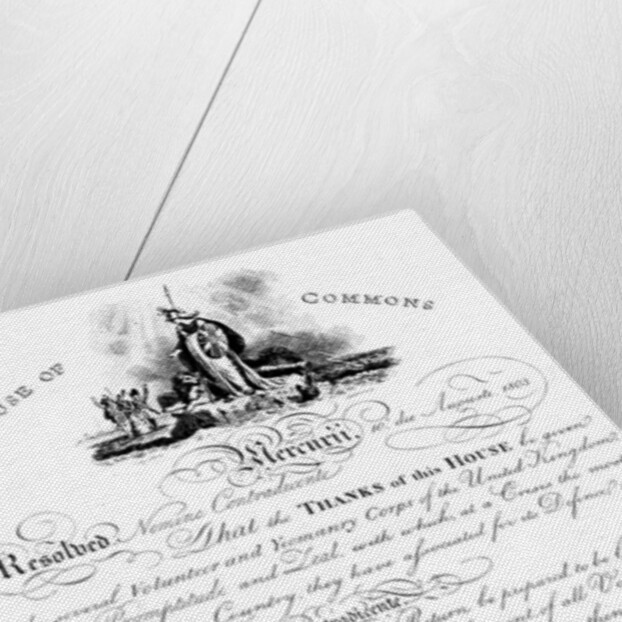 USE OF COMMONS
Mercurii, 10º die Augusti 1803
Resolved, Nemine Contradicente
That the THANKS of this HOUSE be given
several Volunteer and Yeomanry Corps of the United Kingdom
Promptitude and Zeal with which, at a Crisis the mo
Country, they have associated for its Defence
adicente,
Return, be prepared to be l
of all V